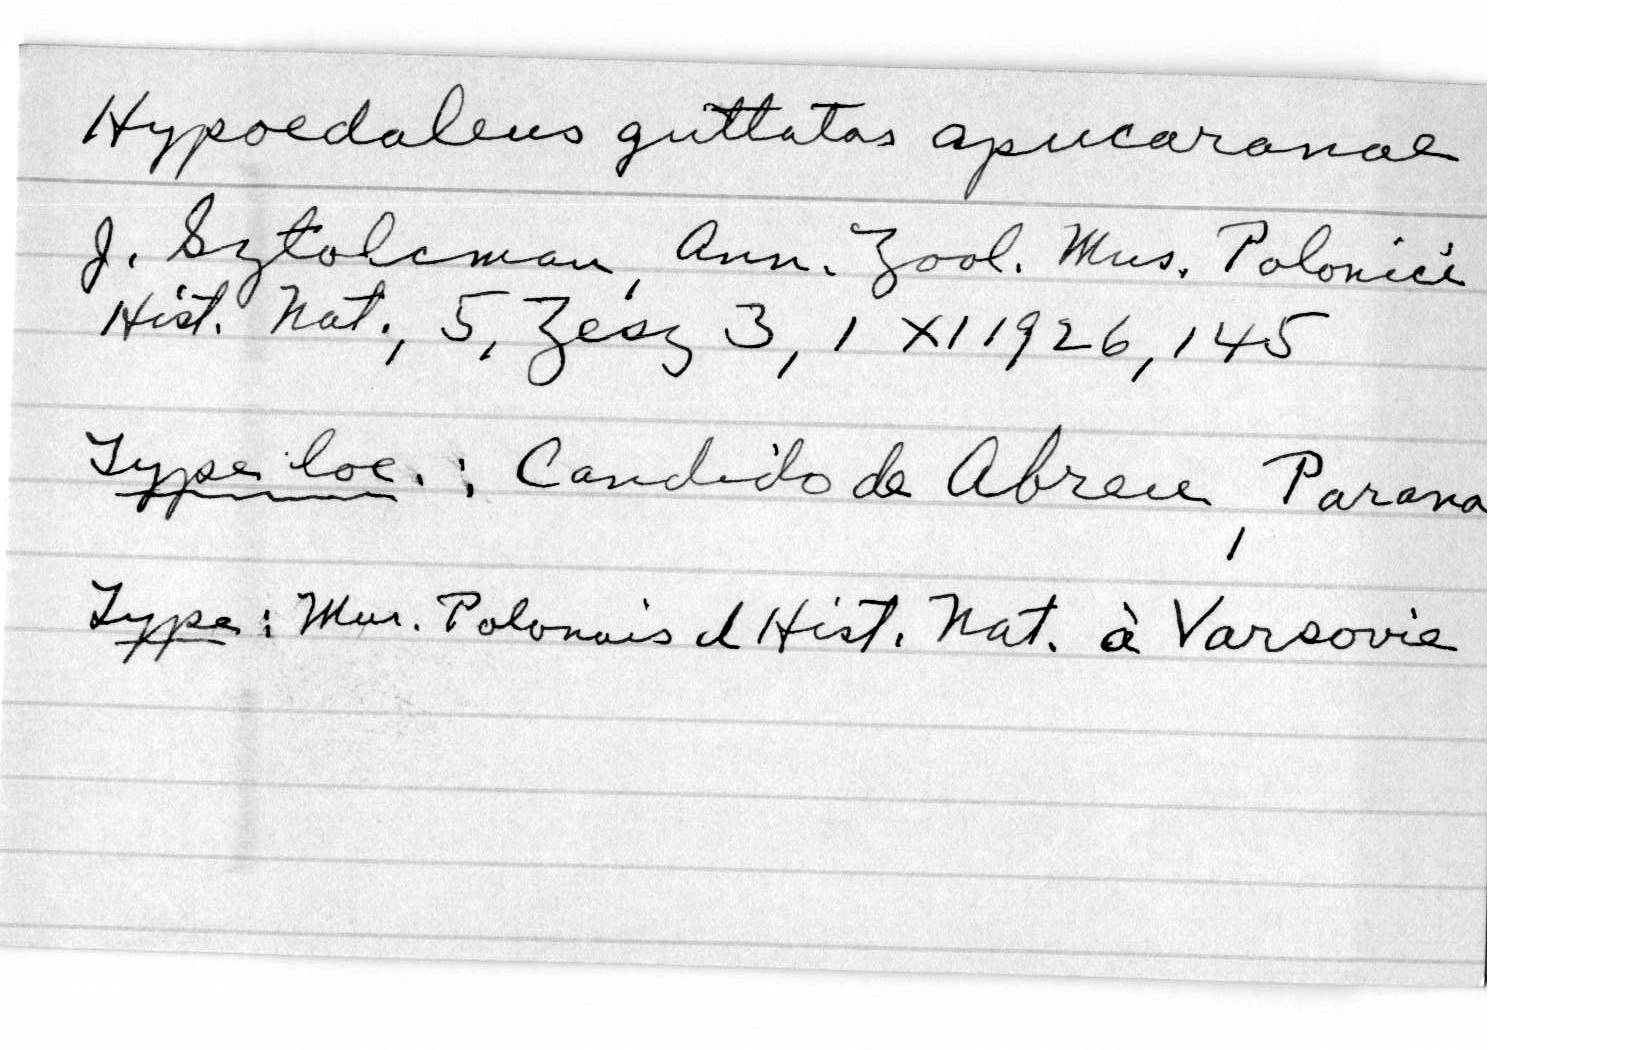 Hypoedaleus guttatus apucaranae
J. Sztolcman, Ann. Zool. Mus. Polonici
Hist. Nat., 5, Zesz 3, 1 XI 1926, 145
Type loc.: Candido de Abreu, Parana
Type: Mus. Polonais d Hist. Nat. à Varsovie